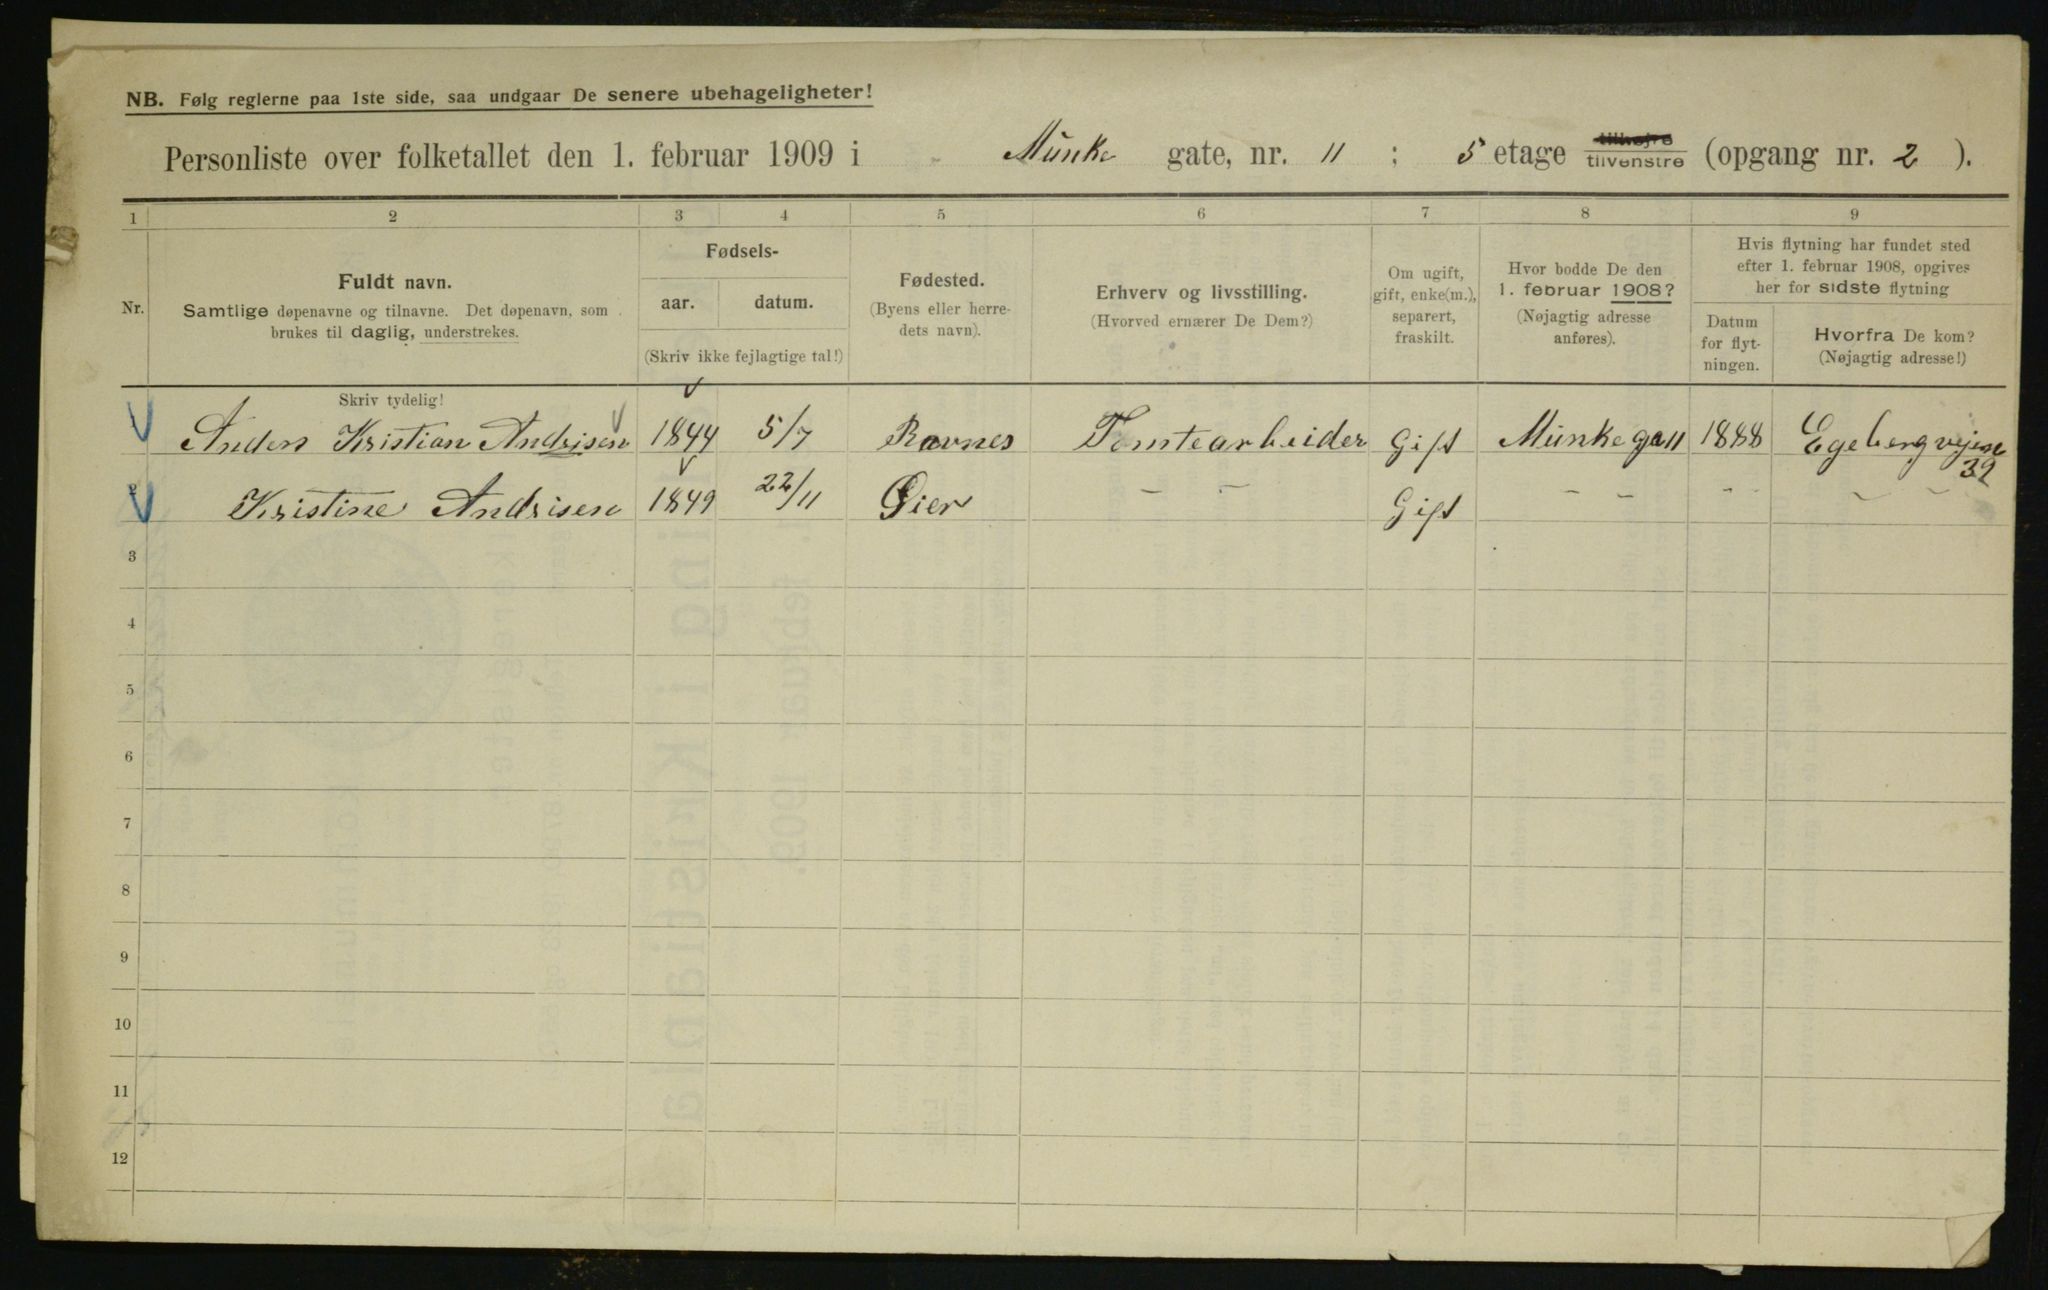 NB. Følg reglerne paa 1ste side, saa undgaar De senere ubehageligheter!
Personliste over folketallet den 1. februar 1909 i Munke gate, nr. 11 ; 5 etage tilhøjre tilvenstre (opgang nr. 2 ).
1 2 3 4 5 6 7 8 9
Nr.
Fuldt navn.
Samtlige døpenavne og tilnavne. Det døpenavn, som
brukes til daglig, understrekes.
Fødsels-
aar. datum.
(Skriv ikke fejlagtige tal!)
Fødested.
(Byens eller herre-
dets navn).
Erhverv og livsstilling.
(Hvorved ernærer De Dem?)
Om ugift,
gift, enke(m.),
separert,
fraskilt.
Hvor bodde De den
1. februar 1908?
(Nøjagtig adresse
anføres).
Hvis flytning har fundet sted
efter 1. februar 1908, opgives
her for sidste flytning
Datum
for flyt-
ningen.
Hvorfra De kom?
(Nøjagtig adresse!)
Skriv tydelig!
1 Anders Kristian Andrisen 1844 5/7 Ravnes Tomtearbeider Gift Munkega 11 1888 Egebergvejen
39
2 Kristine Andrisen 1849 22/11 Øier – – Gift – – – – – –
3
4
5
6
7
8
9
10
11
12